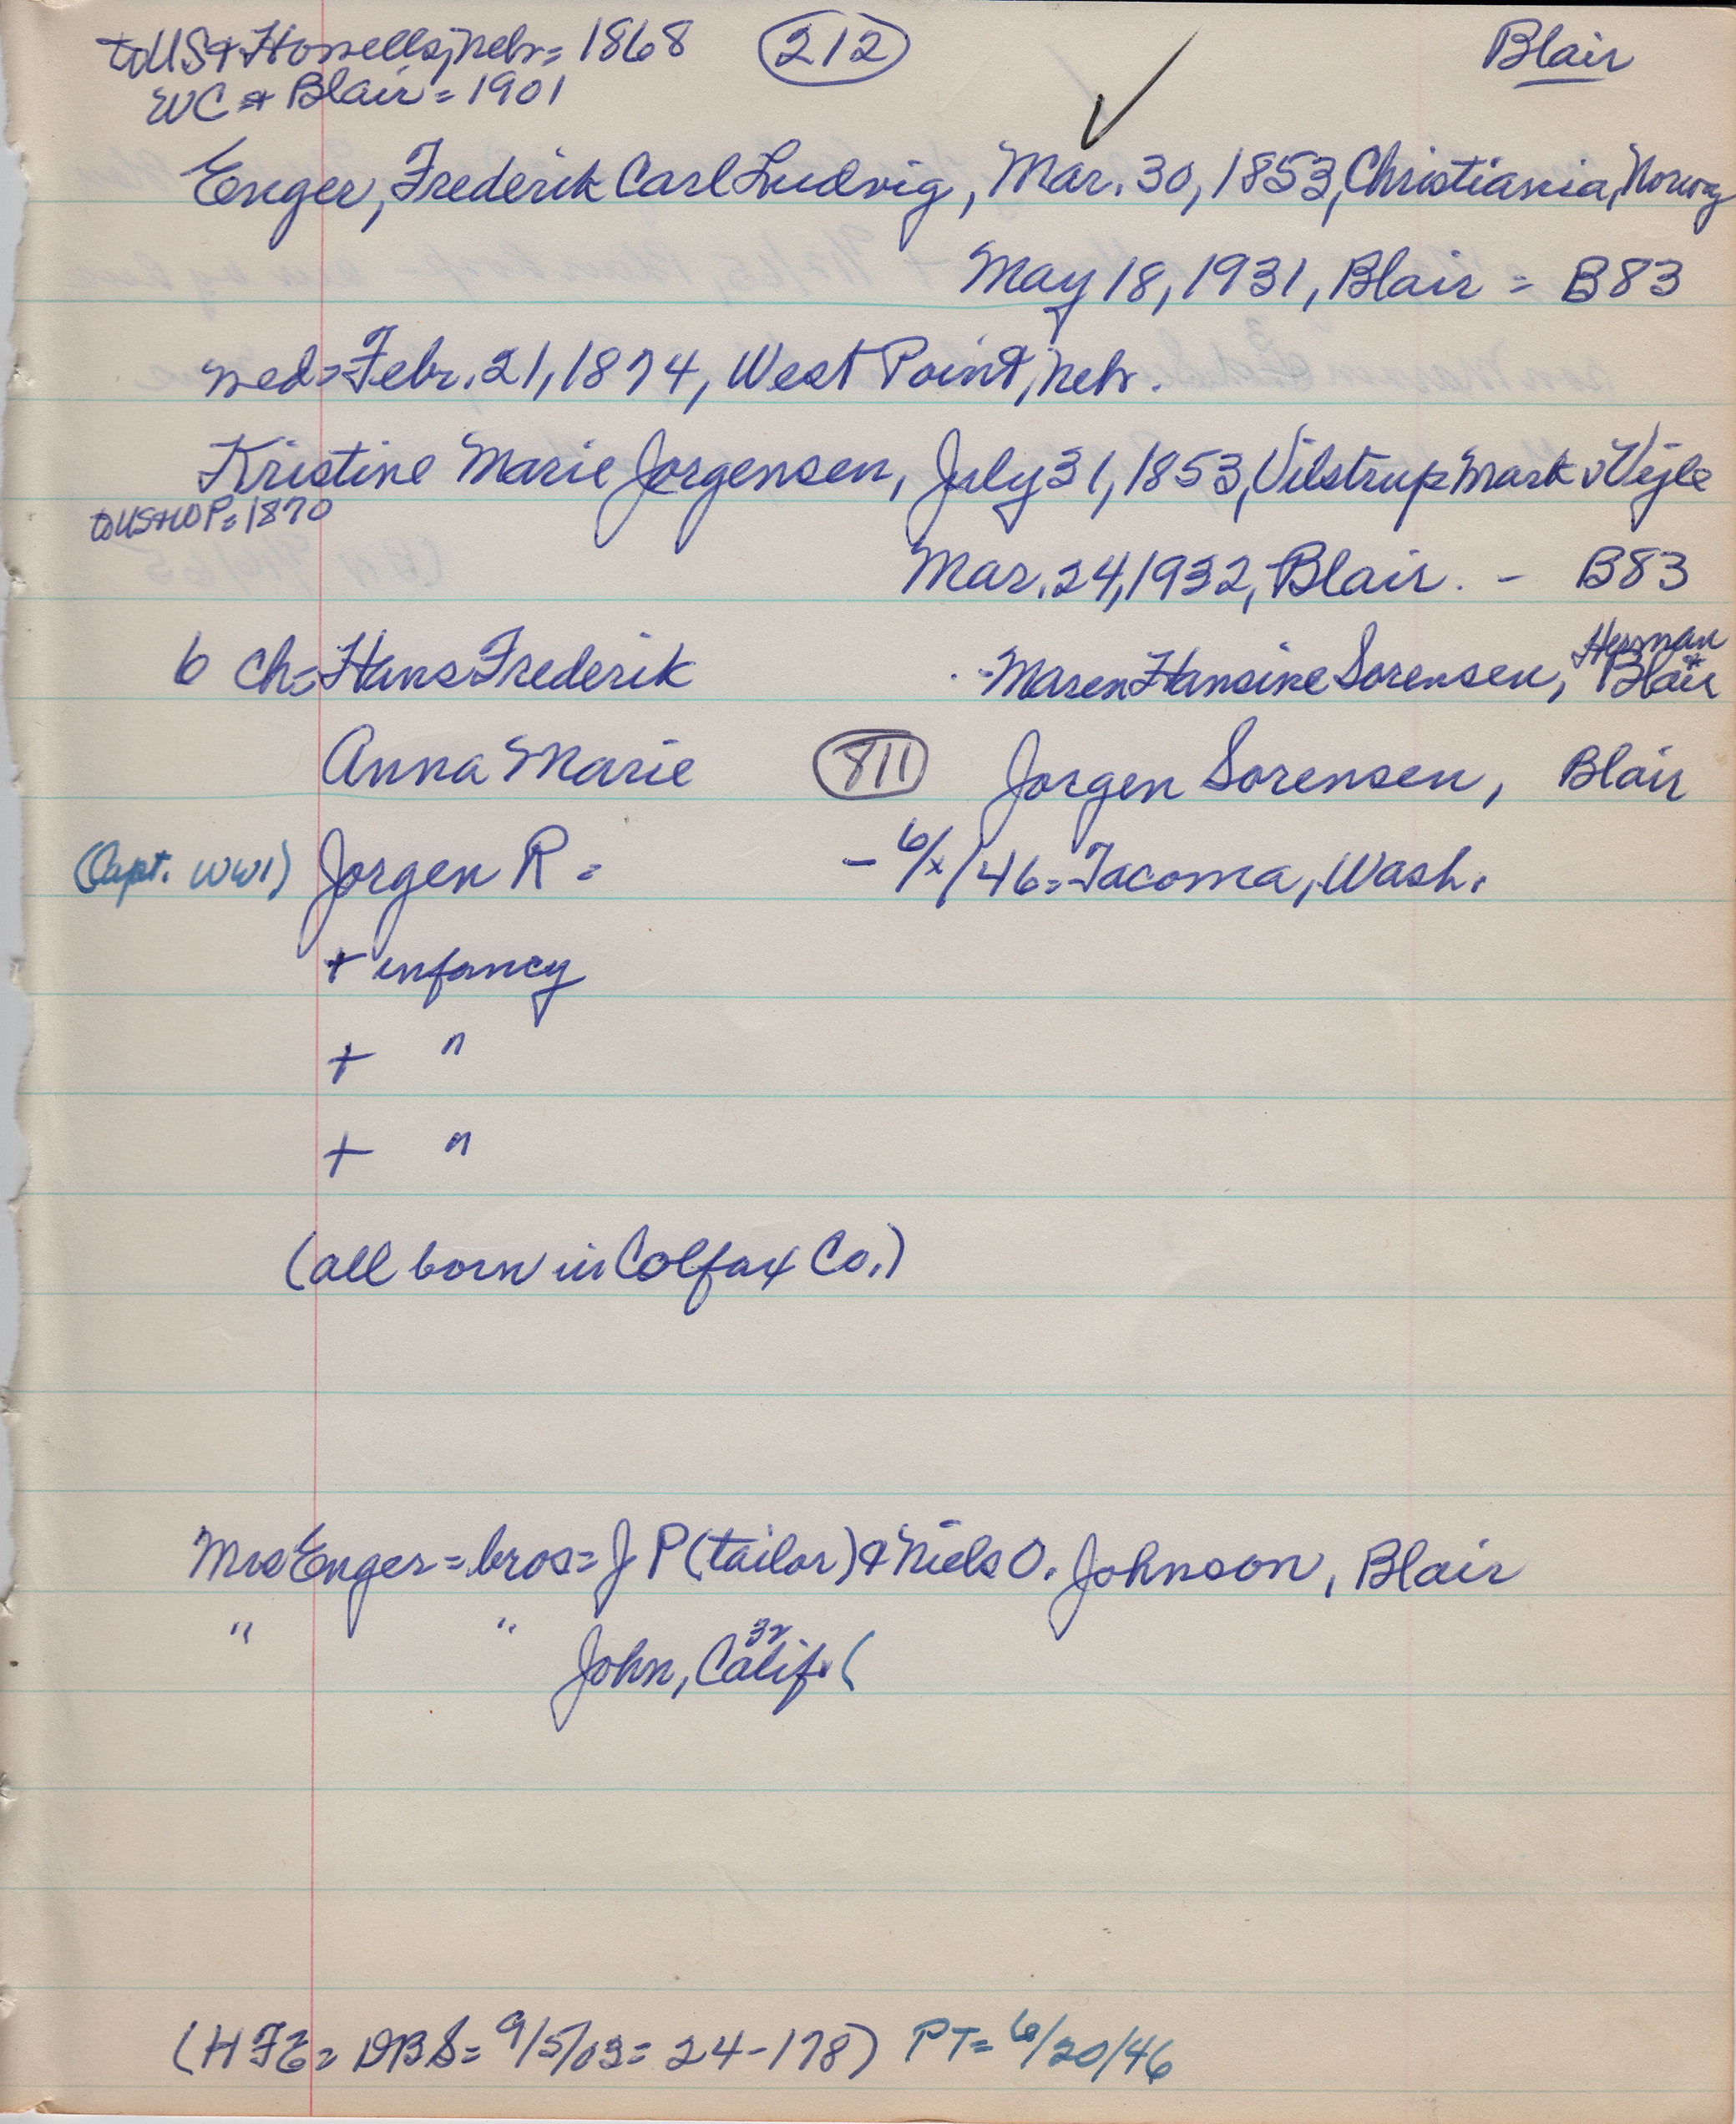 to US & Howells, Nebr = 1868 212 Blair
WC & Blair = 1901
Enger, Frederik Carl Ludvig, Mar. 30, 1853, Christiania, Norway
May 18, 1931, Blair = B83
med = Febr. 21, 1874, West Point, Nebr.
Kristine Marie Jorgensen, July 31, 1853, Vilstrup Mark v Vejle
to US & WP = 1870
Mar. 24, 1932, Blair. - B83
Herman &
6 ch = Hans Frederik Maren Hansine Sorensen, Blair
Anna Marie 811 Jorgen Sorensen, Blair
(Capt. WW1) Jorgen R = - 6/x/46 = Tacoma, Wash.
+ infancy
+ "
+ "
(all born in Colfax Co.)
Mrs Enger = bros = J P (tailor) & Niels O. Johnson, Blair
" " John, Calif. (
32
(HFE = DBS = 9/5/03 = 24-178) PT = 6/20/46